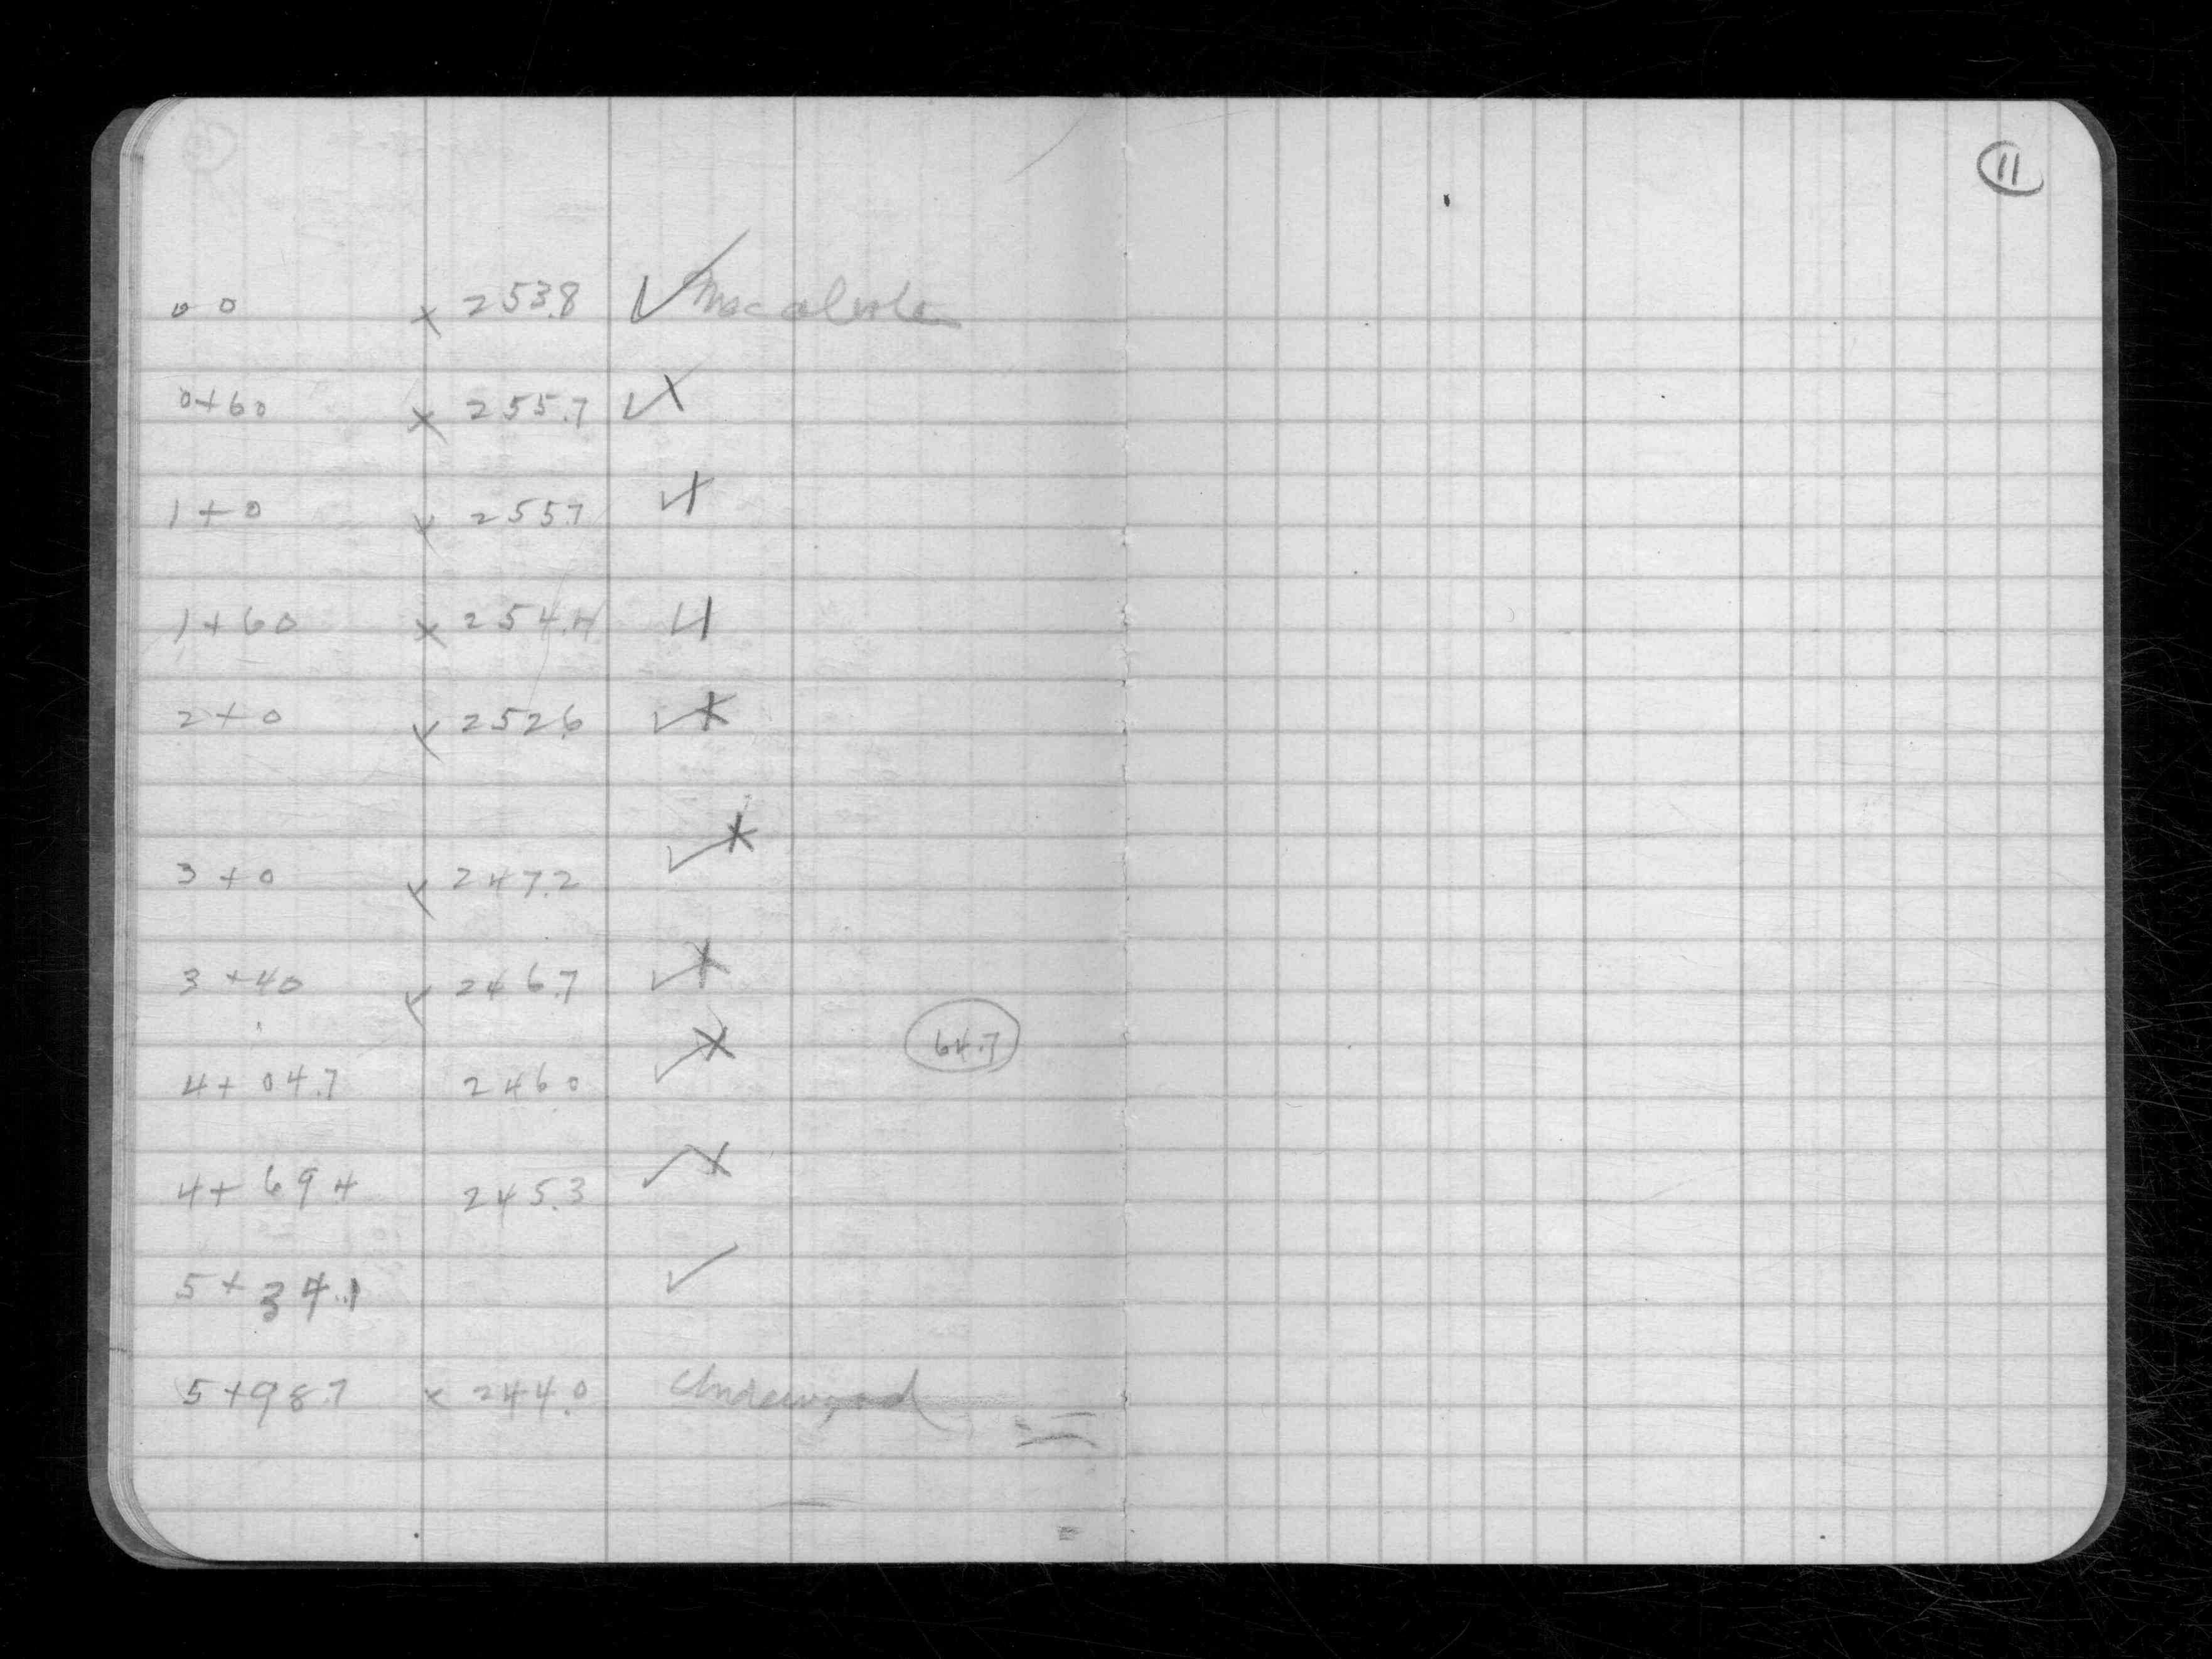 11
0 0 x 253.8 ✓ Macalester
0+60 x 255.7 ✓ x
1+0 x 255.7 ✓ x
1+60 x 254.4 ✓
2+0 x 252.6 ✓ x
3+0 x 247.2 ✓ x
3+40 x 246.7 ✓ x
64.7
4+04.7 246.0 ✓ x
4+69.4 245.3 ✓ x
5+34.1 ✓
5+98.7 x 244.0 Underwood